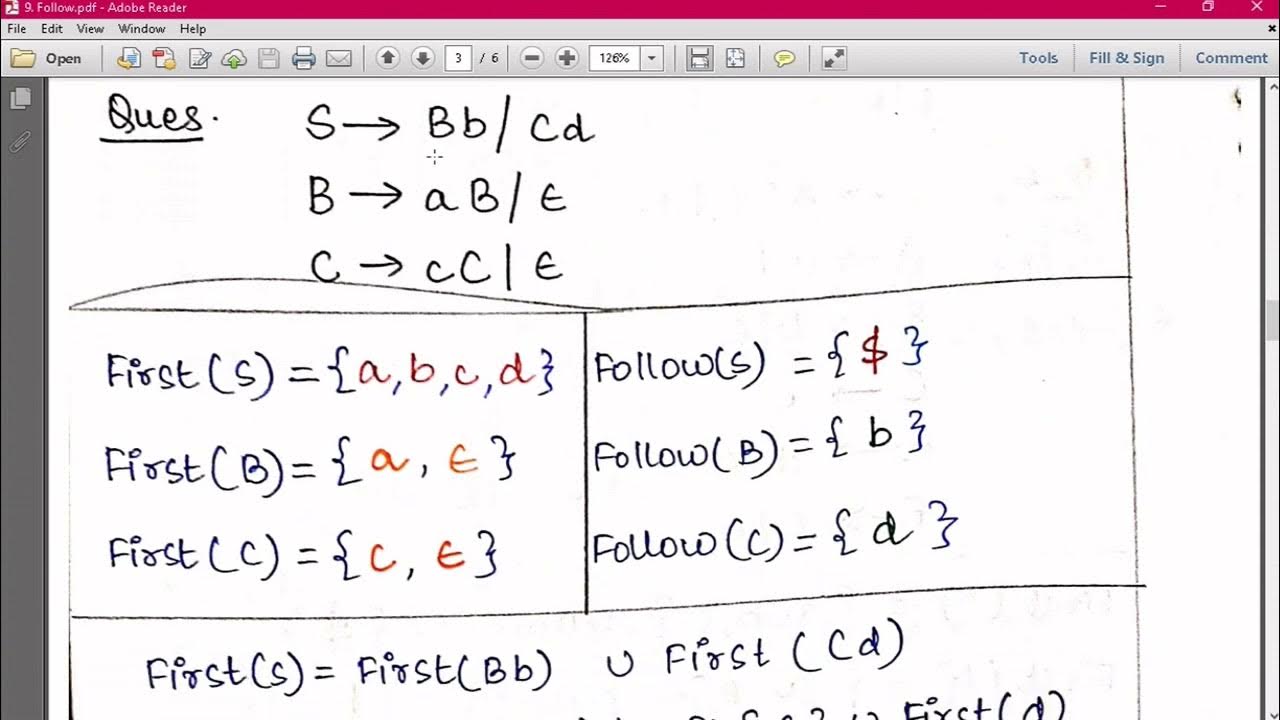 9. Follow.pdf - Adobe Reader
File Edit View Window Help
Open 3 / 6 126% Tools Fill & Sign Comment
Ques. S → Bb / Cd
B → aB / ε
C → cC | ε
First(S) = {a, b, c, d}
First(B) = {a, ε}
First(C) = {c, ε}
Follow(S) = {$}
Follow(B) = {b}
Follow(C) = {d}
First(S) = First(Bb) ∪ First(Cd)
∪ First(d)